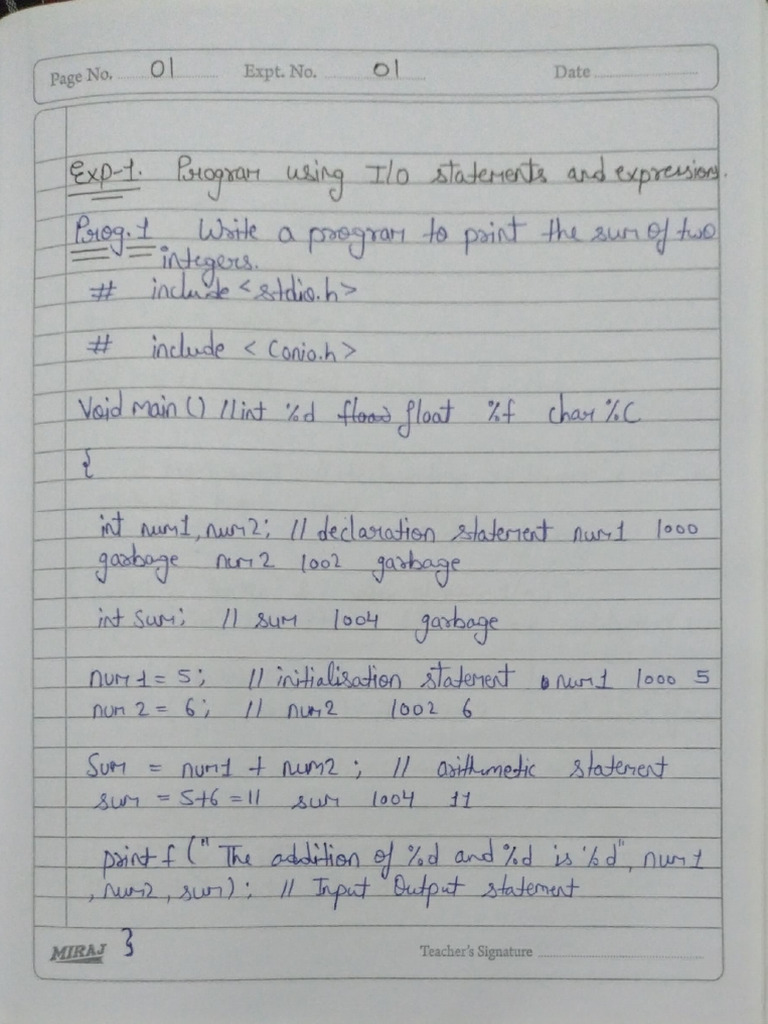 Page No. 01 Expt. No. 01 Date
Exp-1. Program using I/O statements and expressions.
Prog. 1 Write a program to print the sum of two
integers.
# include <stdio.h>
# include < Conio.h>
Void main () //int %d float %f char %C
{
int num1, num2; // declaration statement num1 1000
garbage num2 1002 garbage
int sum; // sum 1004 garbage
num1 = 5; // initialisation statement num1 1000 5
num 2 = 6; // num2 1002 6
Sum = num1 + num2 ; // arithmetic statement
sum = 5+6 = 11 sum 1004 11
printf (" The addition of %d and %d is %d", num1
, num2, sum); // Input Output statement
}
MIRAJ Teacher's Signature